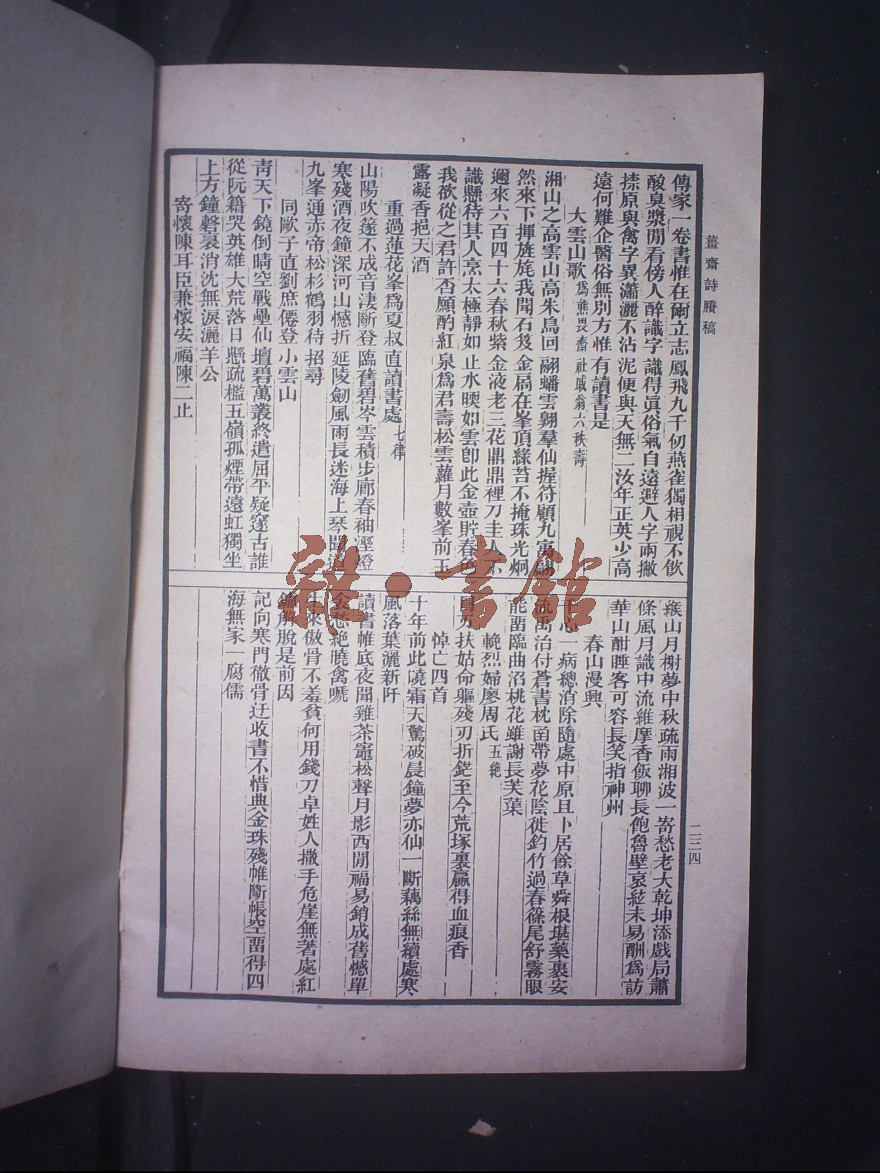 薑齋詩賸稿
二三四
傳家一卷書惟在爾立志鳳飛九千仞燕雀獨相視不飲
酸臭漿閒看傍人醉識字識得眞俗氣自遠避人字兩撇
捺原與禽字異瀟灑不沾泥便與天無二汝年正英少高
遠何難企醫俗無別方惟有讀書是
大雲山歌爲熊畏齋社戚翁六秩壽
湘山之高雲山高朱鳥回翮蟠雲翺羣仙握符顧九寓翩
然來下揮旌旄我聞石笈金扃在峯頂綠苔不掩珠光炯
邇來六百四十六春秋紫金液老三花鼎鼎裡刀圭人不
識懸待其人烹太極靜如止水暖如雲卽此金壺貯春色
我欲從之君許否願酌紅泉爲君壽松雲蘿月數峯前玉
露凝香挹天酒
重過蓮花峯爲夏叔直讀書處七律
山陽吹篴不成音淒斷登臨舊碧岑雲積步廊春袖溼燈
寒殘酒夜鐘深河山憾折延陵劒風雨長迷海上琴聞道
九峯通赤帝松杉鶴羽待招尋
同歐子直劉庶僊登小雲山
靑天下鏡倒晴空戰壘仙壇碧萬叢終遣屈平疑邃古誰
從阮籍哭英雄大荒落日懸疏檻五嶺孤煙帶遠虹獨坐
上方鐘磬裏消沈無淚灑羊公
寄懷陳耳臣兼懷安福陳二止
緱山月榭夢中秋疏雨湘波一寄愁老大乾坤添戲局蕭
條風月識中流維摩香飯聊長飽魯壁哀絃未易酬爲訪
華山酣睡客可容長笑指神州
春山漫興
心一病總消除隨處中原且卜居餘草舜根堪藥裏安
流禹治付蒼書枕函帶夢花陰徙釣竹過春篠尾舒霧眼
能留臨曲沼桃花雖謝長芙蕖
輓烈婦廖周氏五絶
扶姑命軀殘刃折鋩至今荒塚裏贏得血痕香
悼亡四首
十年前此曉霜天驚破晨鐘夢亦仙一斷藕絲無續處寒
風落葉灑新阡
讀書帷底夜聞雞茶竈松聲月影西閒福易銷成舊憾單
衾愁絶曉禽嘶
生來傲骨不羞貧何用錢刀卓姓人撒手危崖無著處紅
鑪解脫是前因
記向寒門徹骨迂收書不惜典金珠殘帷斷帳空留得四
海無家一腐儒